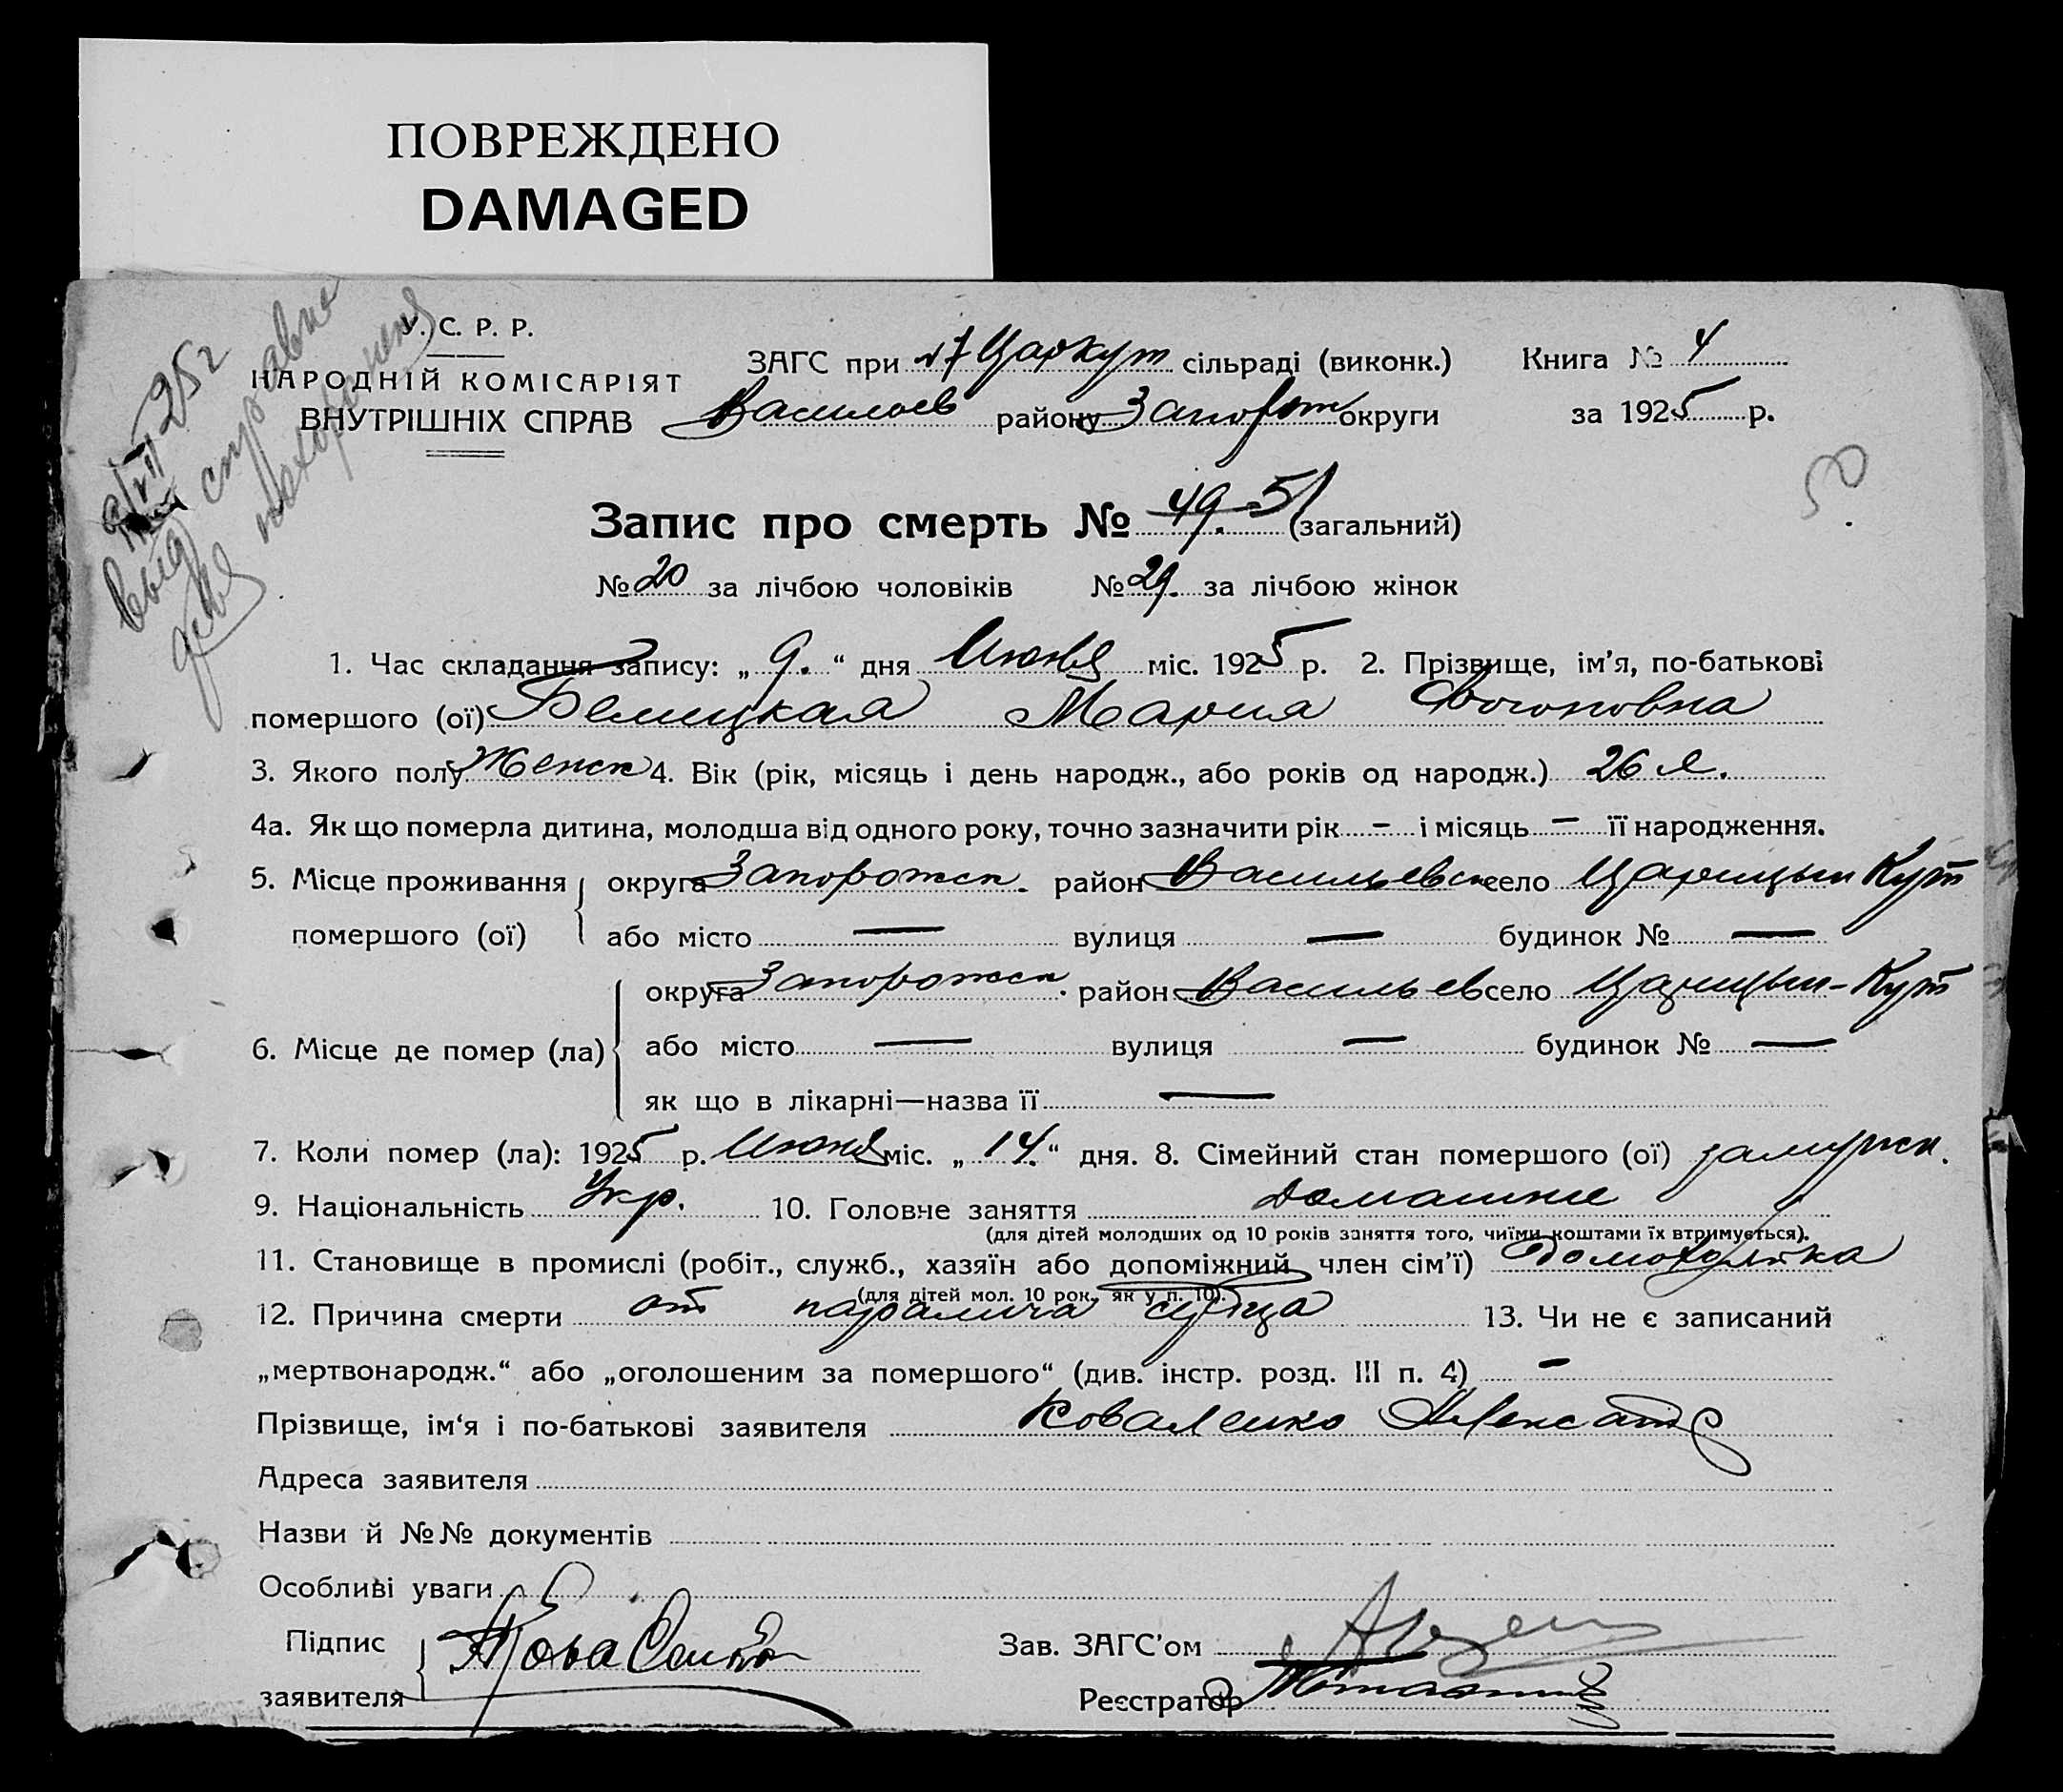 ПОВРЕЖДЕНО
DAMAGED
У. С. Р. Р.
НАРОДНІЙ КОМІСАРІЯТ
ВНУТРІШНІХ СПРАВ
ЗАГС при Царкут сільраді (виконк.) Книга № 4
Васильев району Запорож округи за 1925 р.
справка
для похоронения
50
Запис про смерть № 49. 51 (загальний)
№ 20 за лічбою чоловіків № 29. за лічбою жінок
1. Час складання запису: „ 9. “ дня Июня міс. 1925 р. 2. Прізвище, ім'я, по-батькові
помершого (ої) Белицкая Мария
3. Якого полу Женск 4. Вік (рік, місяць і день народж., або років од народж.) 26 л.
4а. Як що померла дитина, молодша від одного року, точно зазначити рік – і місяць – її народження.
5. Місце проживання помершого (ої) округа Запорожск. район Васильевск село Царицын Кут
або місто — вулиця — будинок № —
6. Місце де помер (ла) округа Запорожск. район Васильев село Царицын-Кут
або місто — вулиця — будинок № —
як що в лікарні—назва її —
7. Коли помер (ла): 1925 р. Июня міс. „ 14. “ дня. 8. Сімейний стан помершого (ої) замужн.
9. Національність Укр. 10. Головне заняття домашние
(для дітей молодших од 10 років заняття того, чиїми коштами їх втримується).
11. Становище в промислі (робіт., служб., хазяїн або допоміжний член сім'ї) Домохозяйка
(для дітей мол. 10 рок., як у п. 10).
12. Причина смерти от паралича сердца 13. Чи не є записаний
„мертвонародж.“ або „оголошеним за помершого“ (див. інстр. розд. III п. 4) –
Прізвище, ім‘я і по-батькові заявителя Коваленко Александр
Адреса заявителя
Назви й №№ документів
Особливі уваги
Підпис заявителя
Зав. ЗАГС'ом
Реєстратор